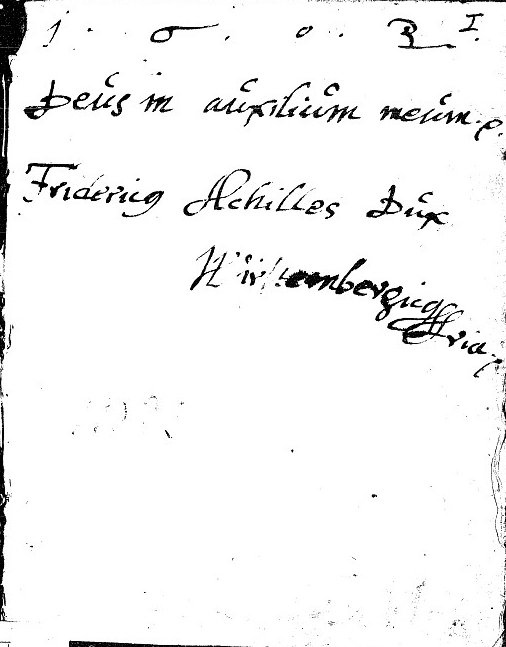 1 . 6 . 0 . 3 I.
Deus in auxilium meum.
Fridericus Achilles Dux
Würtembergicus